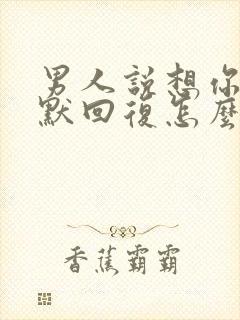 男人說想你
默回復怎麼
香蕉霸霸